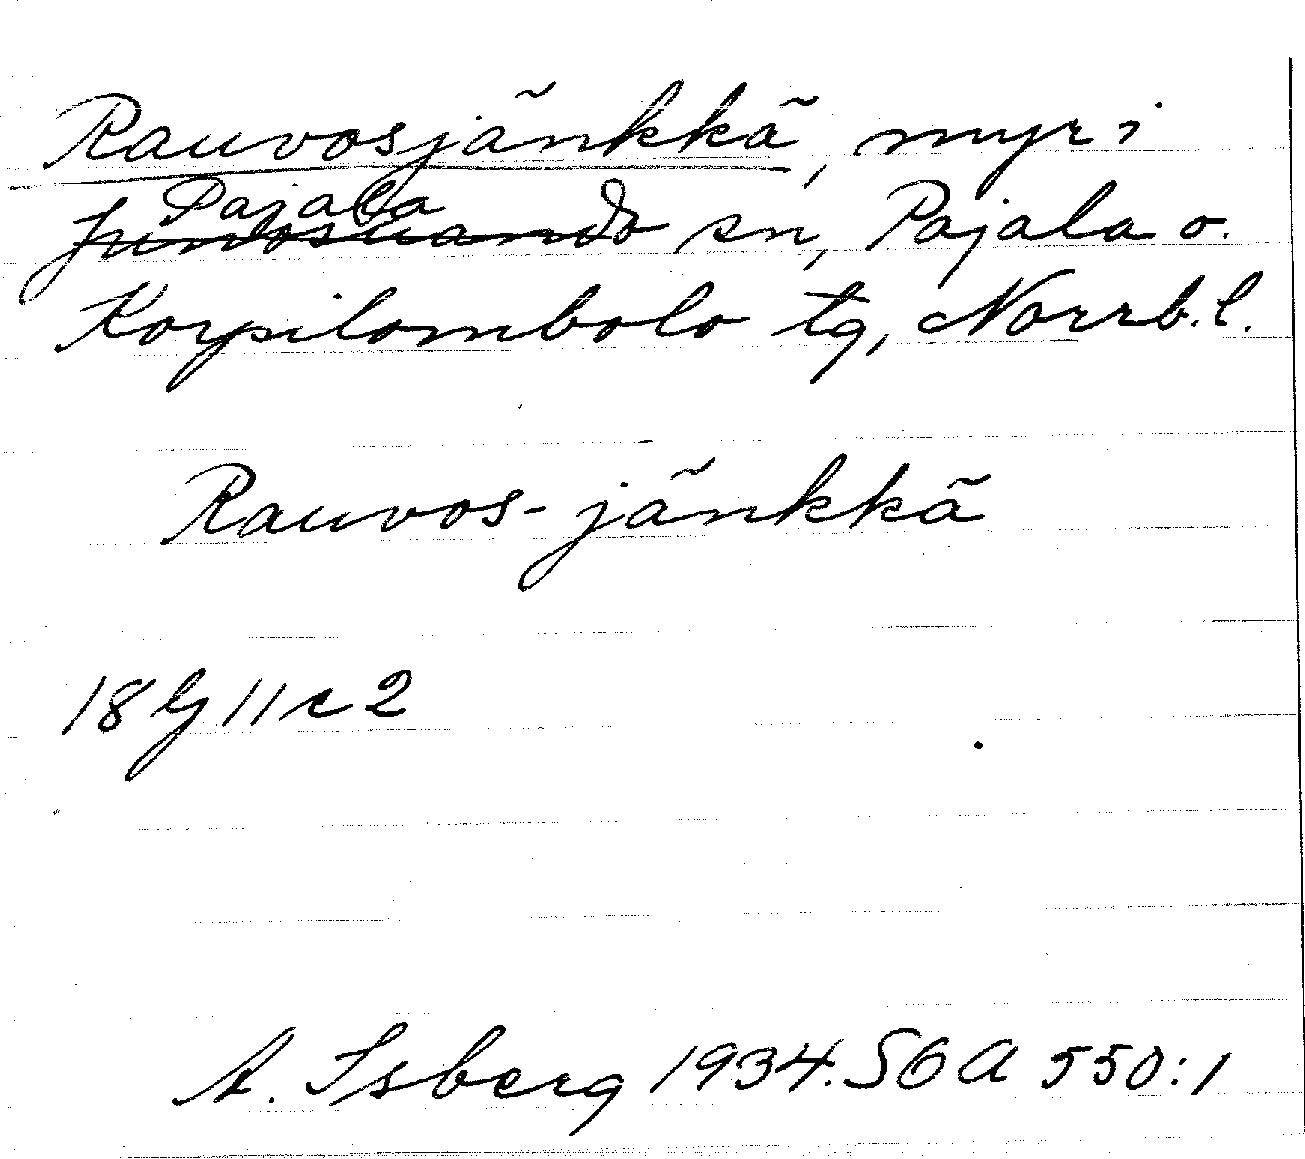 Rauvosjänkkä, myr i
Pajala
Junosuando sn, Pajala o.
Korpilombolo tg, Norrb.l.
Rauvos-jänkkä
18 G 11 c 2
A. Isberg 1934. SOA 550:1